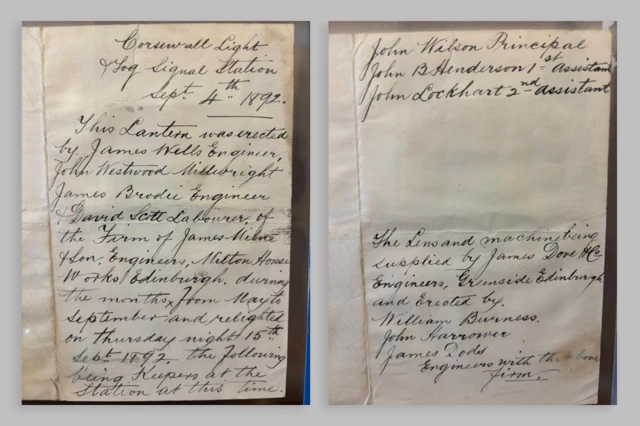 Corsewall Light
& Fog Signal Station
Sept. 4th 1892.
This Lantern was erected
by James Wells Engineer,
John Westwood Millwright
James Brodie Engineer
& David Scott Labourer, of
the Firm of James Milne
& Son. Engineers, Milton House
Works Edinburgh. during
the months, from May to
September and relighted
on Thursday night 15th
Sept 1892. the following
being Keepers at the
Station at this time.
John Wilson Principal
John B Henderson 1st Assistant
John Lockhart 2nd assistant
The Lens and machine being
supplied by James Dove & Co
Engineers, Greenside Edinburgh
and Erected by.
William Burness.
John Harrower
James Dods
Engineers with the
firm.